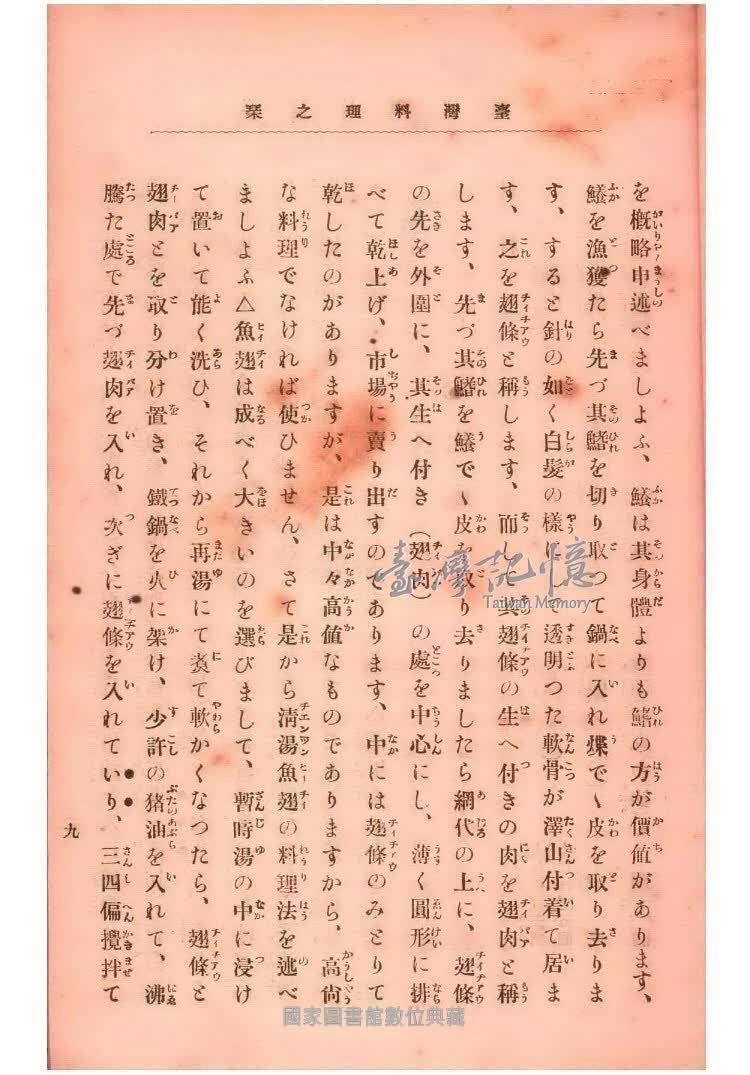 臺灣料理之栞
を概略申述べましよふ、鱶は其身體よりも鰭の方が價値があります、
鱶を漁獲たら先づ其鰭を切り取つて鍋に入れ煠で〱皮を取り去りま
す、すると針の如く白髮の樣に透明つた軟骨が澤山付着て居ま
す、之を翅條と稱します、而して其翅條の生へ付きの肉を翅肉と稱
します、先づ其鰭を鱶で〱皮を取り去りましたら網代の上に、翅條
の先を外圍に、其生へ付き(翅肉)の處を中心にし、薄く圓形に排
べて乾上げ、市場に賣り出すのであります、中には翅條のみとりて
乾したのがありますが、是は中々高値なものでありますから、高尙
な料理でなければ使ひません、さて是から淸湯魚翅の料理法を述べ
ましよふ△魚翅は成べく大きいのを選びまして、暫時湯の中に浸け
て置いて能く洗ひ、それから再湯にて煮て軟かくなつたら、翅條と
翅肉とを取り分け置き、鐵鍋を火に架け、少許の猪油を入れて、沸
騰た處で先づ翅肉を入れ、次ぎに翅條を入れていり、三四偏攪拌て
九
臺灣記憶
Taiwan Memory
國家圖書館數位典藏